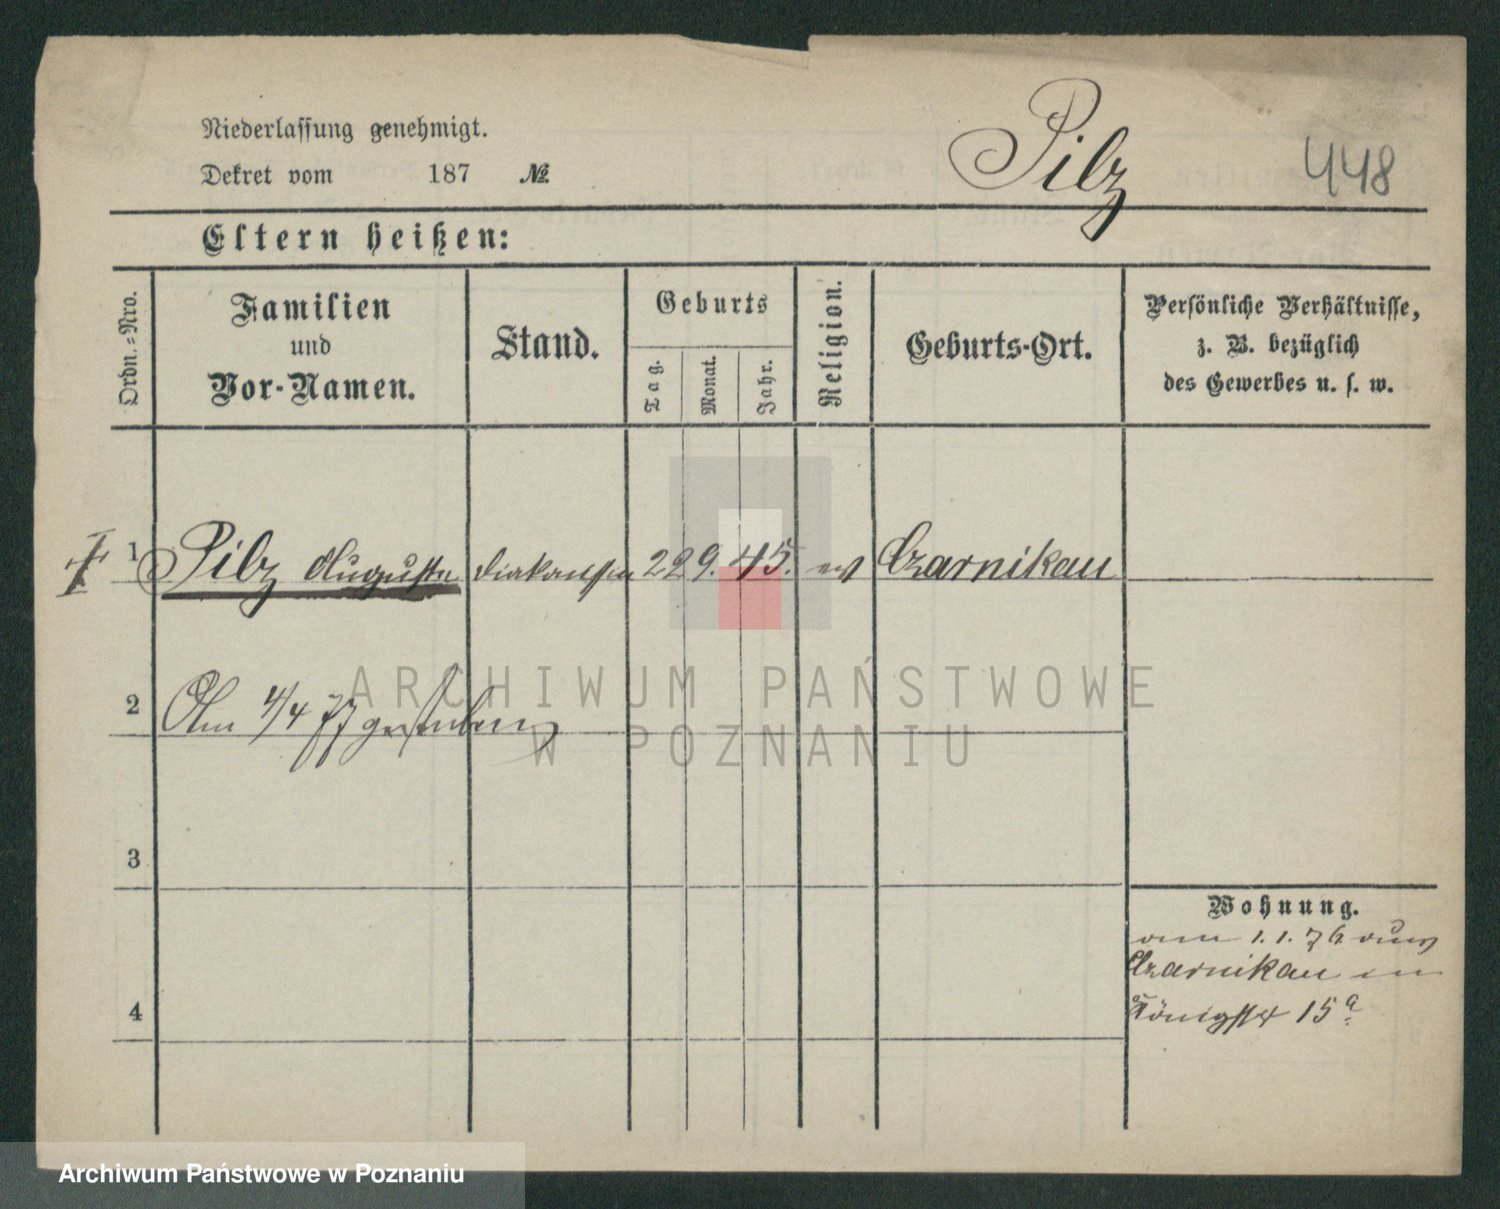 Niederlassung genehmigt.
Dekret vom 187 №
Pilz
448
Eltern heißen:
Ordn.=Nro.
Familien
und
Vor-Namen.
Stand.
Geburts
Tag.
Monat.
Jahr.
Religion.
Geburts-Ort.
Persönliche Verhältnisse,
z. B. bezüglich
des Gewerbes u. s. w.
1 Pilz Auguste Diakonissin 22 9. 45. ev Czarnikau
2 Am 4/4 77 gestorben
3
4
Wohnung.
am 1. 1. 76 aus
Czarnikau in
Königstr 15a
ARCHIWUM PAŃSTWOWE
W POZNANIU
Archiwum Państwowe w Poznaniu